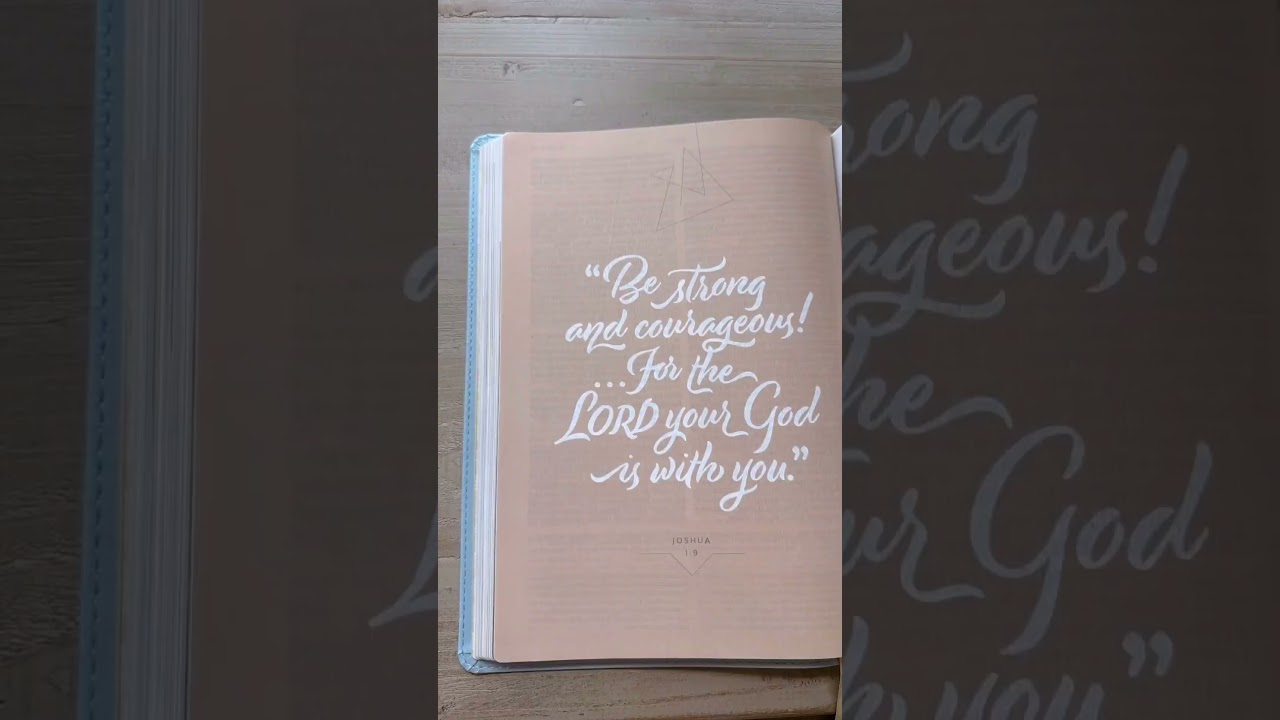 “Be strong
and courageous!
...For the
LORD your God
is with you.”
JOSHUA
1:9